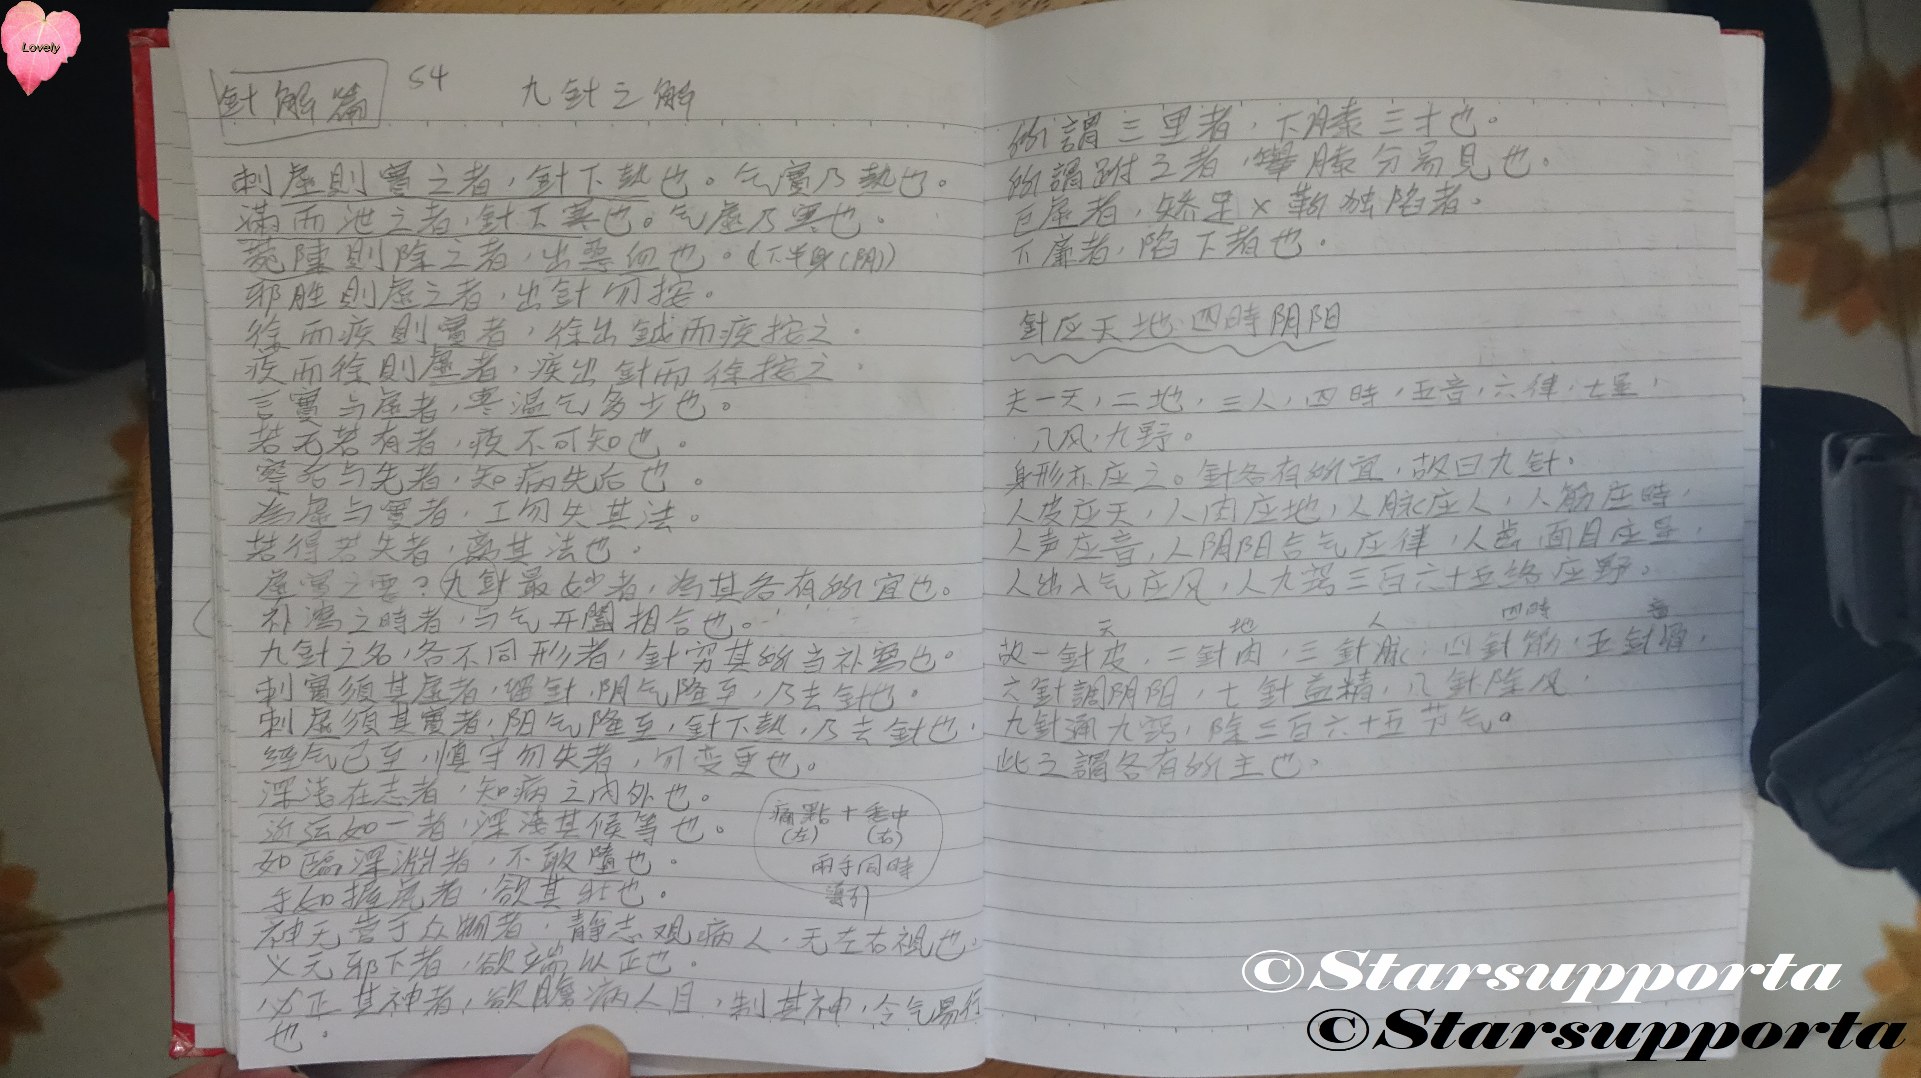 Lovely
針解篇 54 九針之解
刺虛則實之者，針下熱也。气實乃熱也。
滿而泄之者，針下寒也。气虛乃寒也。
菀陳則除之者，出惡血也。(下半身(阴))
邪胜則虛之者，出針勿按。
徐而疾則實者，徐出鋮而疾按之.
疾而徐則虛者，疾出針而徐按之.
言實与虛者，寒温气多少也。
若无若有者，疾不可知也.
察后与先者，知病先后也.
為虛与實者，工勿失其法。
若得若失者，离其法也.
虛實之要?九針最妙者，為其各有所宜也。
补瀉之時者，与气开闔相合也。
九針之名，各不同形者，針穷其所当补瀉也。
刺實須其虛者，留針，阴气隆至，乃去針也.
刺虛須其實者，阳气隆至，針下熱，乃去針也.
經气已至，慎守勿失者，勿变更也。
深浅在志者，知病之内外也。
近远如一者，深浅其候等也。
如臨深淵者，不敢墮也.
手如握虎者，欲其壯也.
神无营于众物者，静志观病人.无左右視也.
义无邪下者，欲端以正也.
必正其神者，欲瞻病人目，制其神，令气易行
也.
痛點+手中
(左) (右)
兩手同時
導引
所謂三里者，下膝三寸也。
所謂跗之者，舉膝分易見也。
巨虛者，矫足 独陷者.
下廉者，陷下者也.
針应天地四時阴阳
夫一天，二地，三人，四時，五音，六律，七星，
八风，九野。
身形亦应之。針各有所宜，故曰九針.
人皮应天，人肉应地，人脉应人，人筋应時，
人声应音，人阴阳合气应律，人齿面目应星，
人出入气应风，人九窍三百六十五络应野。
天 地 人 四時 音
故一針皮，二針肉，三針脉，四針筋，五針骨，
六針調阴阳，七針益精，八針除风，
九針通九窍，除三百六十五节气。
此之謂各有所主也.
©Starsupporta
©Starsupporta